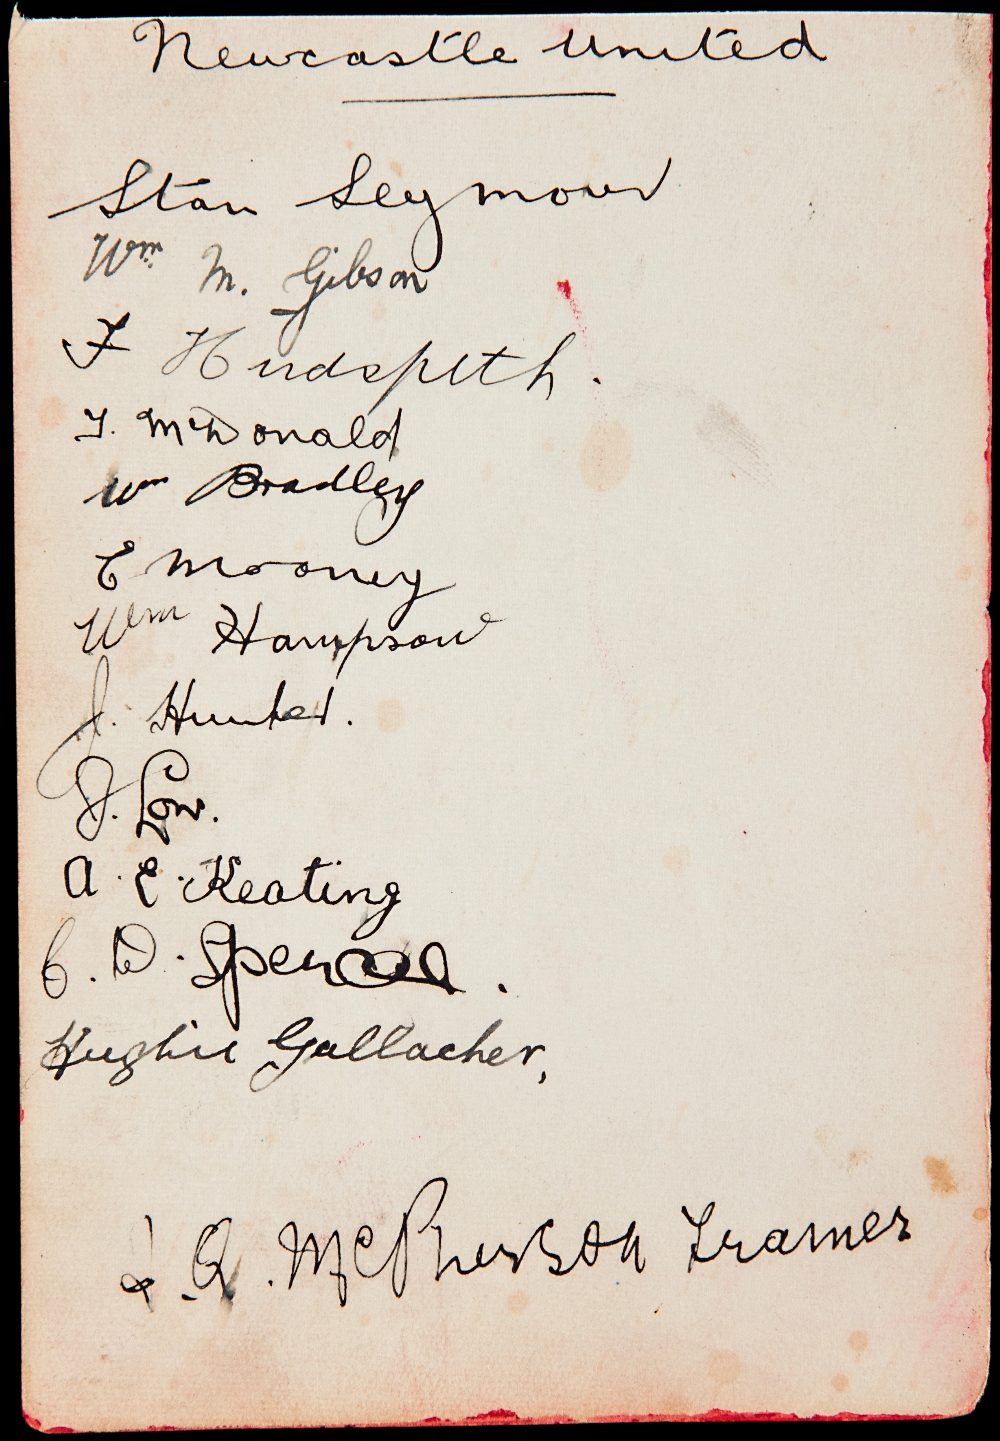 Newcastle United
Stan Seymour
Wm M. Gibson
F Hudspeth.
T. McDonald
Wm Bradley
E Mooney
Wm Hampson
J. Hunter.
J. Low.
A. E. Keating
C. W. Spencer.
Hughie Gallacher,
J. Q. McPherson Trainer